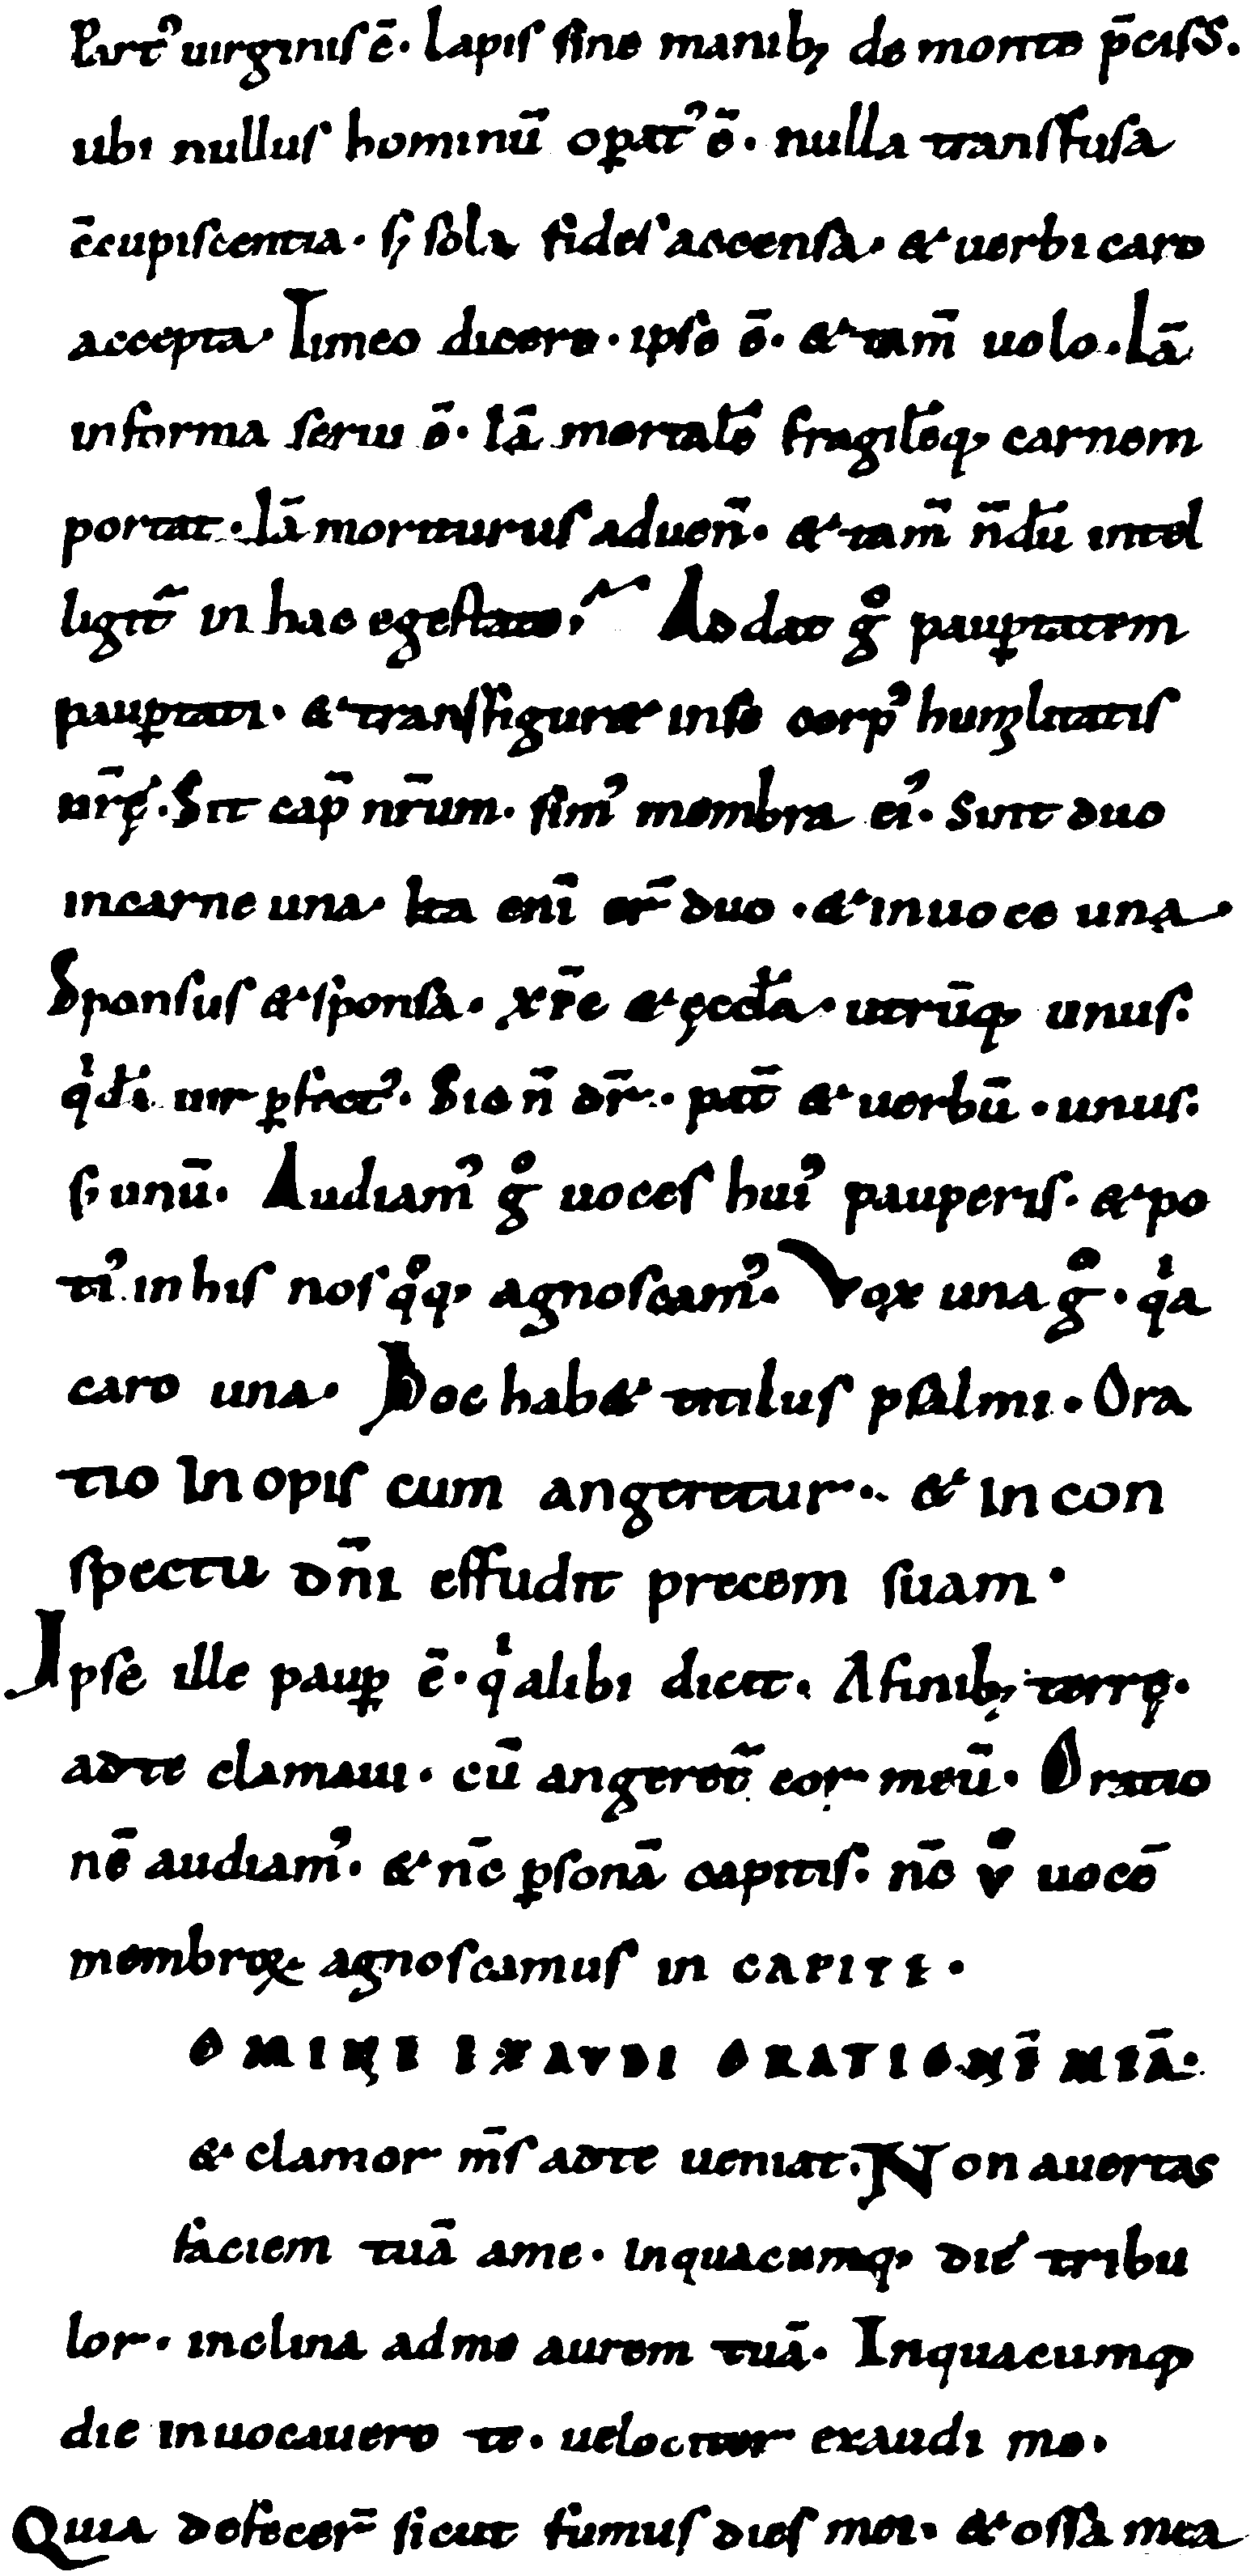 Part᾽ uirginis ē. lapis sine manib; de monte p̄ciss᾽.
ubi nullus hominū opat᾽ ē. nulla transfusa
c̄cupiscentia. s; sola fides accensa. & uerbi caro
accepta. Timeo dicere. ipse ē. & tam̄ uolo. Iā
in forma serui ē. Iā mortalē fragilēq; carnem
portat. Iā moriturus aduen̄. & tam̄ n̄dū intel
ligit᷑ in hac egestate; Addat gͦ paup̱tatem
paup̱tati. & transfiguret in se corp᾽ humilitatis
nr̄ę. Sit cap̄ nr̄um. sim᾽ membra ei᾽. Sint duo
in carne una. Ita enī er̄ duo. & in uoce una
Sponsus & sponsa. xp̄c & ęccła. utrūq; unus.
qͥdā uir ꝑfect᾽. Sic n̄ dr̄. pat̄ & uerbū. unus.
s; unū. Audiam᾽ gͦ uoces hui᾽ pauperis. & po
ti᾽ in his nos qͦq; agnoscam᾽. Vox una gͦ. qͥa
caro una. Hoc hab& titulus psalmi. Ora
tio Inopis cum angeretur. & in con
spectu dn̄i effudit precem suam.
Ipse ille paup̱ ē. qͥ alibi dicit. A finib; terrę.
ad te clamaui. cū angeret᷑ cor meū. Oratio
nē audiam᾽. & nc̄ ꝑsonā capitis. nc̄ v̊ uocē
membroꝝ agnoscamus in CAPITE.
OMINE EXAVDI ORATIONĒ MEĀ.
& clamor ms̄ ad te ueniat. Non auertas
faciem tuā a me. in quacumq; die tribu
lor. inclina ad me aurem tuā. In quacumq;
die inuocauero te. uelociter exaudi me.
Quia defecer̄ sicut fumus dies mei. & ossa mea